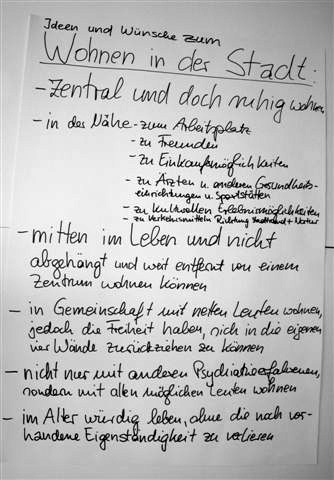 Ideen und Wünsche zum
Wohnen in der Stadt:
- Zentral und doch ruhig wohnen
- in der Nähe - zum Arbeitsplatz
- zu Freunden
- zu Einkaufsmöglichkeiten
- zu Ärzten u. anderen Gesundheits-
einrichtungen u. Sportstätten
- zu kulturellen Erlebnismöglichkeiten
- zu Verkehrsmitteln Richtung Stadtrand + Natur
- mitten im Leben und nicht
abgehängt und weit entfernt von einem
Zentrum wohnen können
- in Gemeinschaft mit netten Leuten wohnen,
jedoch die Freiheit haben, sich in die eigenen
vier Wände zurückziehen zu können
- nicht nur mit anderen Psychiatrieerfahrenen,
sondern mit allen möglichen Leuten wohnen
- im Alter würdig leben, ohne die noch vor-
handene Eigenständigkeit zu verlieren